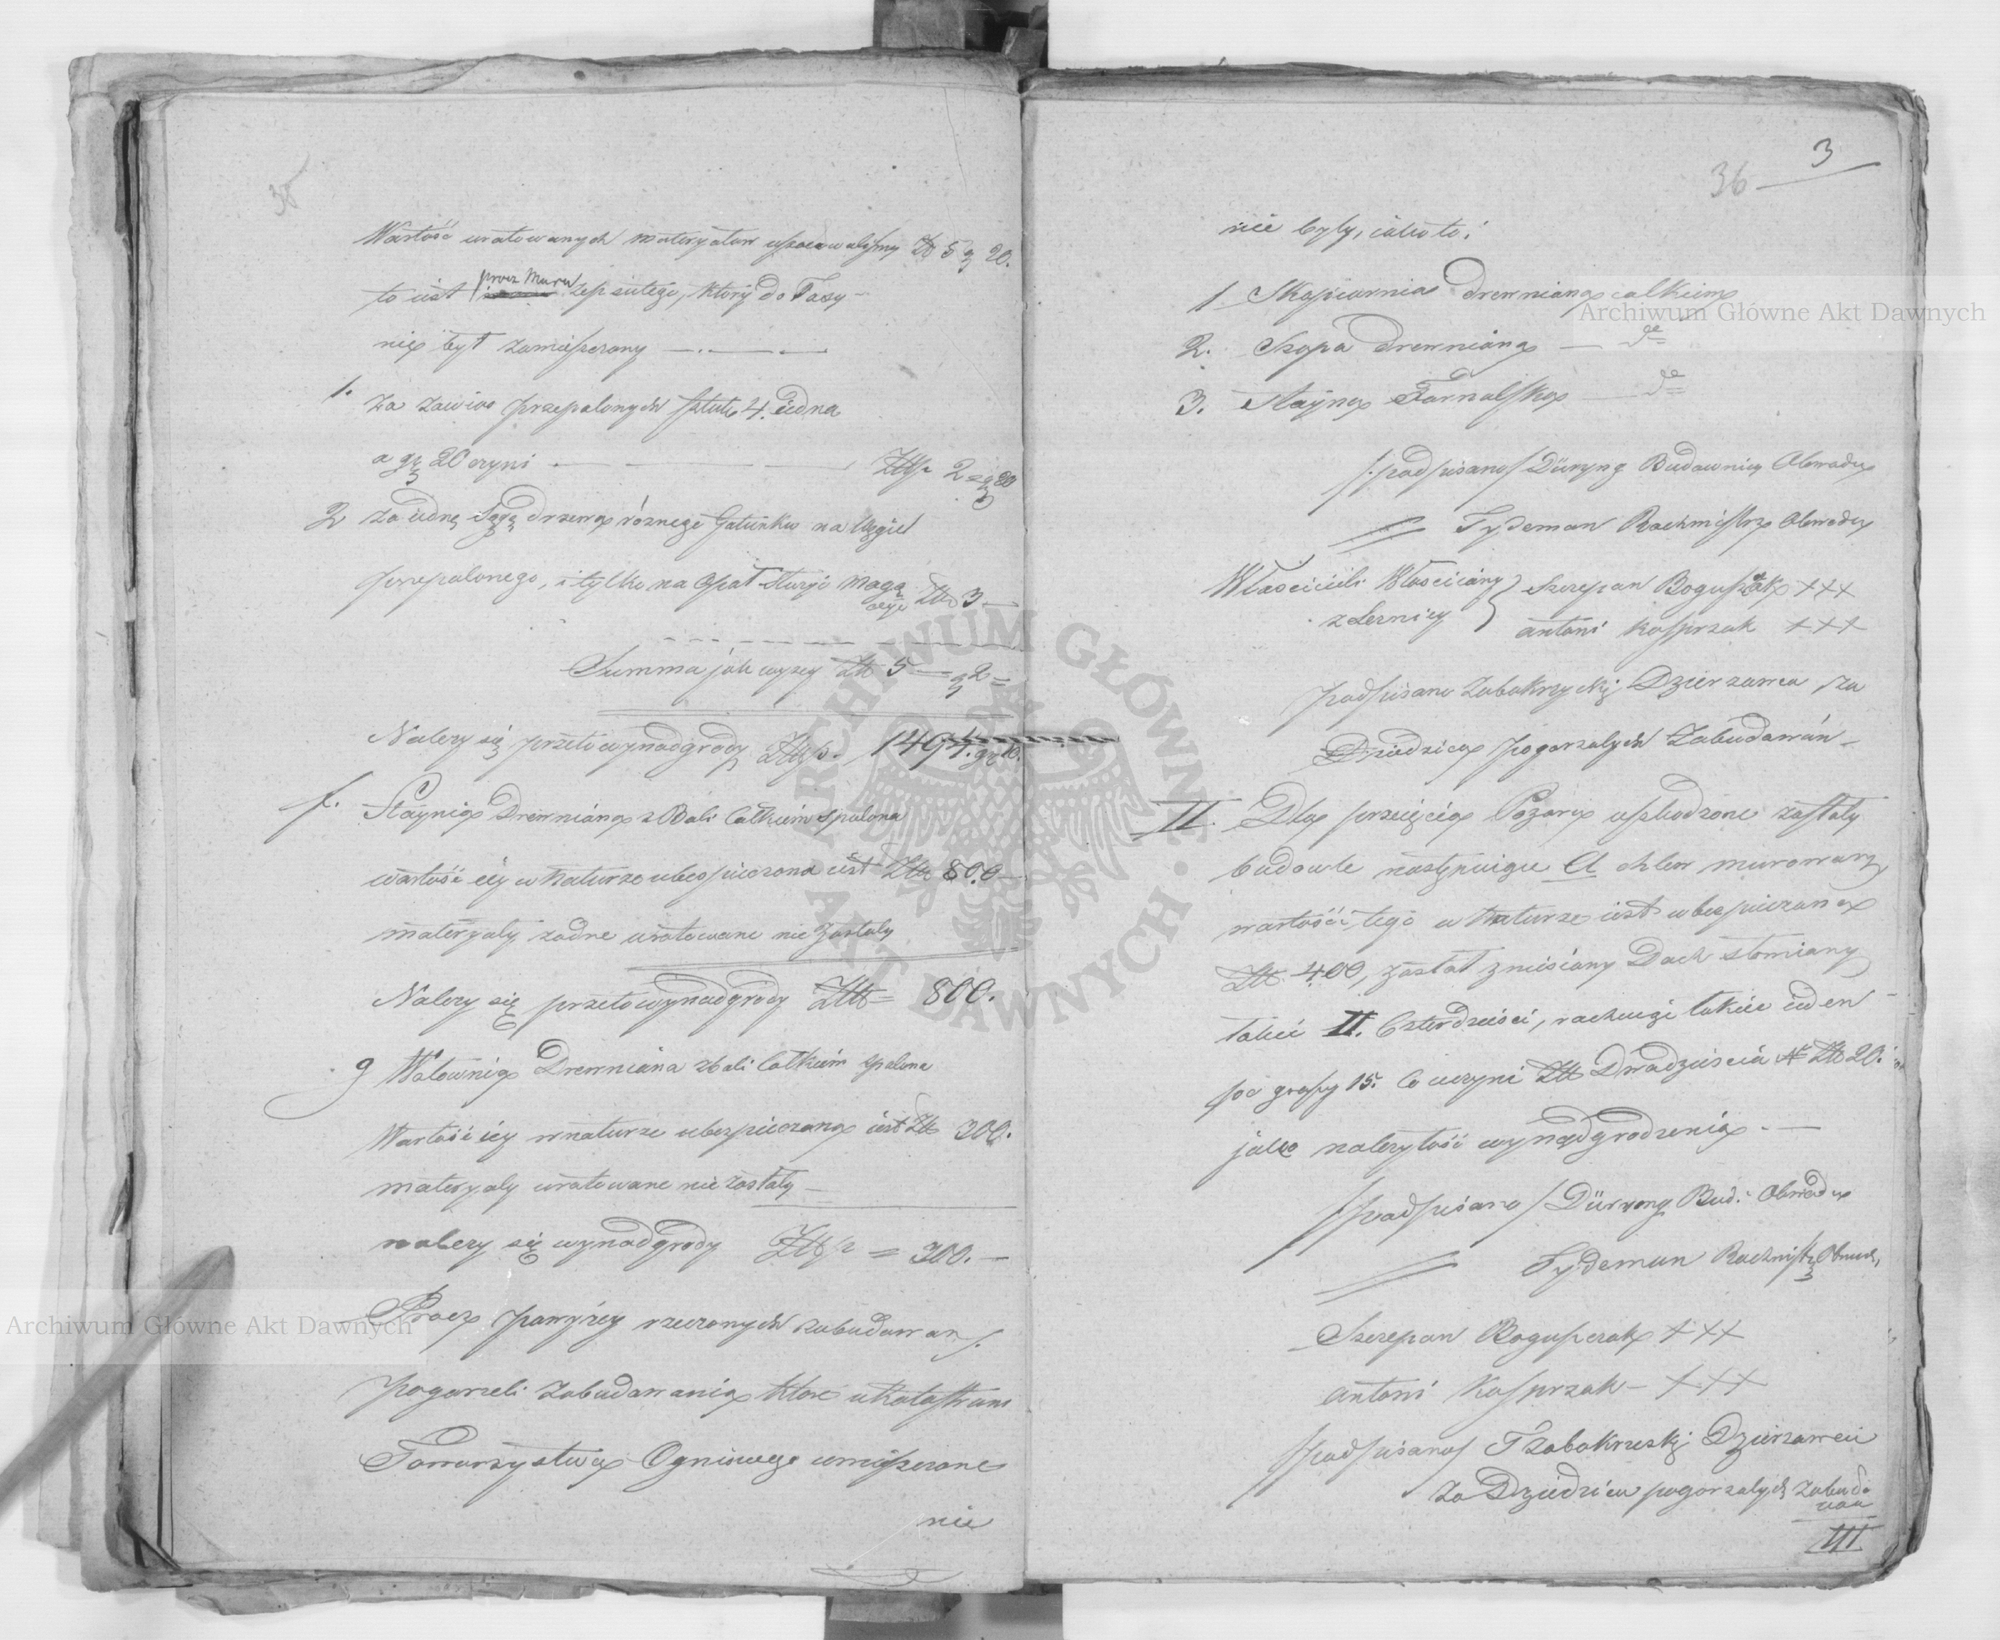 35
Wartość uratowanych materyałów uszacowaliśmy Zło 5 g 20.
to iest prócz Muru zepsutego, który do Taxy
nie był zamieszczony
1. Za zawias przepalonych sztuk 4. iedna
a gr 20 czyni Złłp. 2 = g 20
2 Za iedną Sągą drzewa różnego Gatunku na Węgiel
przepalonego, i tylko na Opał służyć mogą
Złło 3
Summa jak wyzey Złło 5 g 2=
Należy się przeto wynadgrody Złłp. 1494. gr 10.
f. Staynia Drewniana z Bali Całkiem spalona
wartość iey w Naturze ubespieczona iest Złło 800
materyały żadne uratowane nie zostały
Należy się przeto wynadgrody Złło = 800.
g Wołownia Drewniana z bali Całkiem spalona
Wartość iey w naturze ubezpieczona iest Złło 300.
materyały uratowane nie zostały
należy się wynadgrody Złłp = 300.
Procz powyżey rzeczonych zabudowań
pogorzeli zabudowania które w Katastrum
Towarzystwa Ogniowego umieszczone
nie
3
36
nie były, iako to:
1. drewniana całkiem
2. Szopa drewniana de
3. Stayna Fornalska de
/podpisano/ Düryng Budowniczy Obwodu
// Tydeman Rachmistrz Obwodu
Właściciele Włościany Szczepan Boguszak +++
z Leznicy antoni Kasprzak +++
podpisano Zabokrzycki Dzierzawca za
Dziedzica pogorzałych Zabudowań
II. Dla przecięcia Pożaru uszkodzone zostały
budowle następuiące A chlew murowany
wartość tego w Naturze iest ubezpieczona
Złło 400, został zniesiony Dach słomiany
łokci II. Czterdzieści, rachuiąc łokieć ieden
po groszy 15. Co uczyni Złło Dwadzieścia Złło 20.
jako należytość wynadgrodzenia.
/podpisano/ Düryng Bud. Obwodu
// Tydeman Rachmistrz Obwod,
Szczepan Boguszak +++
antoni Kasprzak +++
/podpisano/ Zabokrzeski Dzierzawca
za Dziedzica pogorzałych zabudo
wan
III
Archiwum Główne Akt Dawnych
Archiwum Główne Akt Dawnych
ARCHIWUM GŁÓWNE AKT DAWNYCH